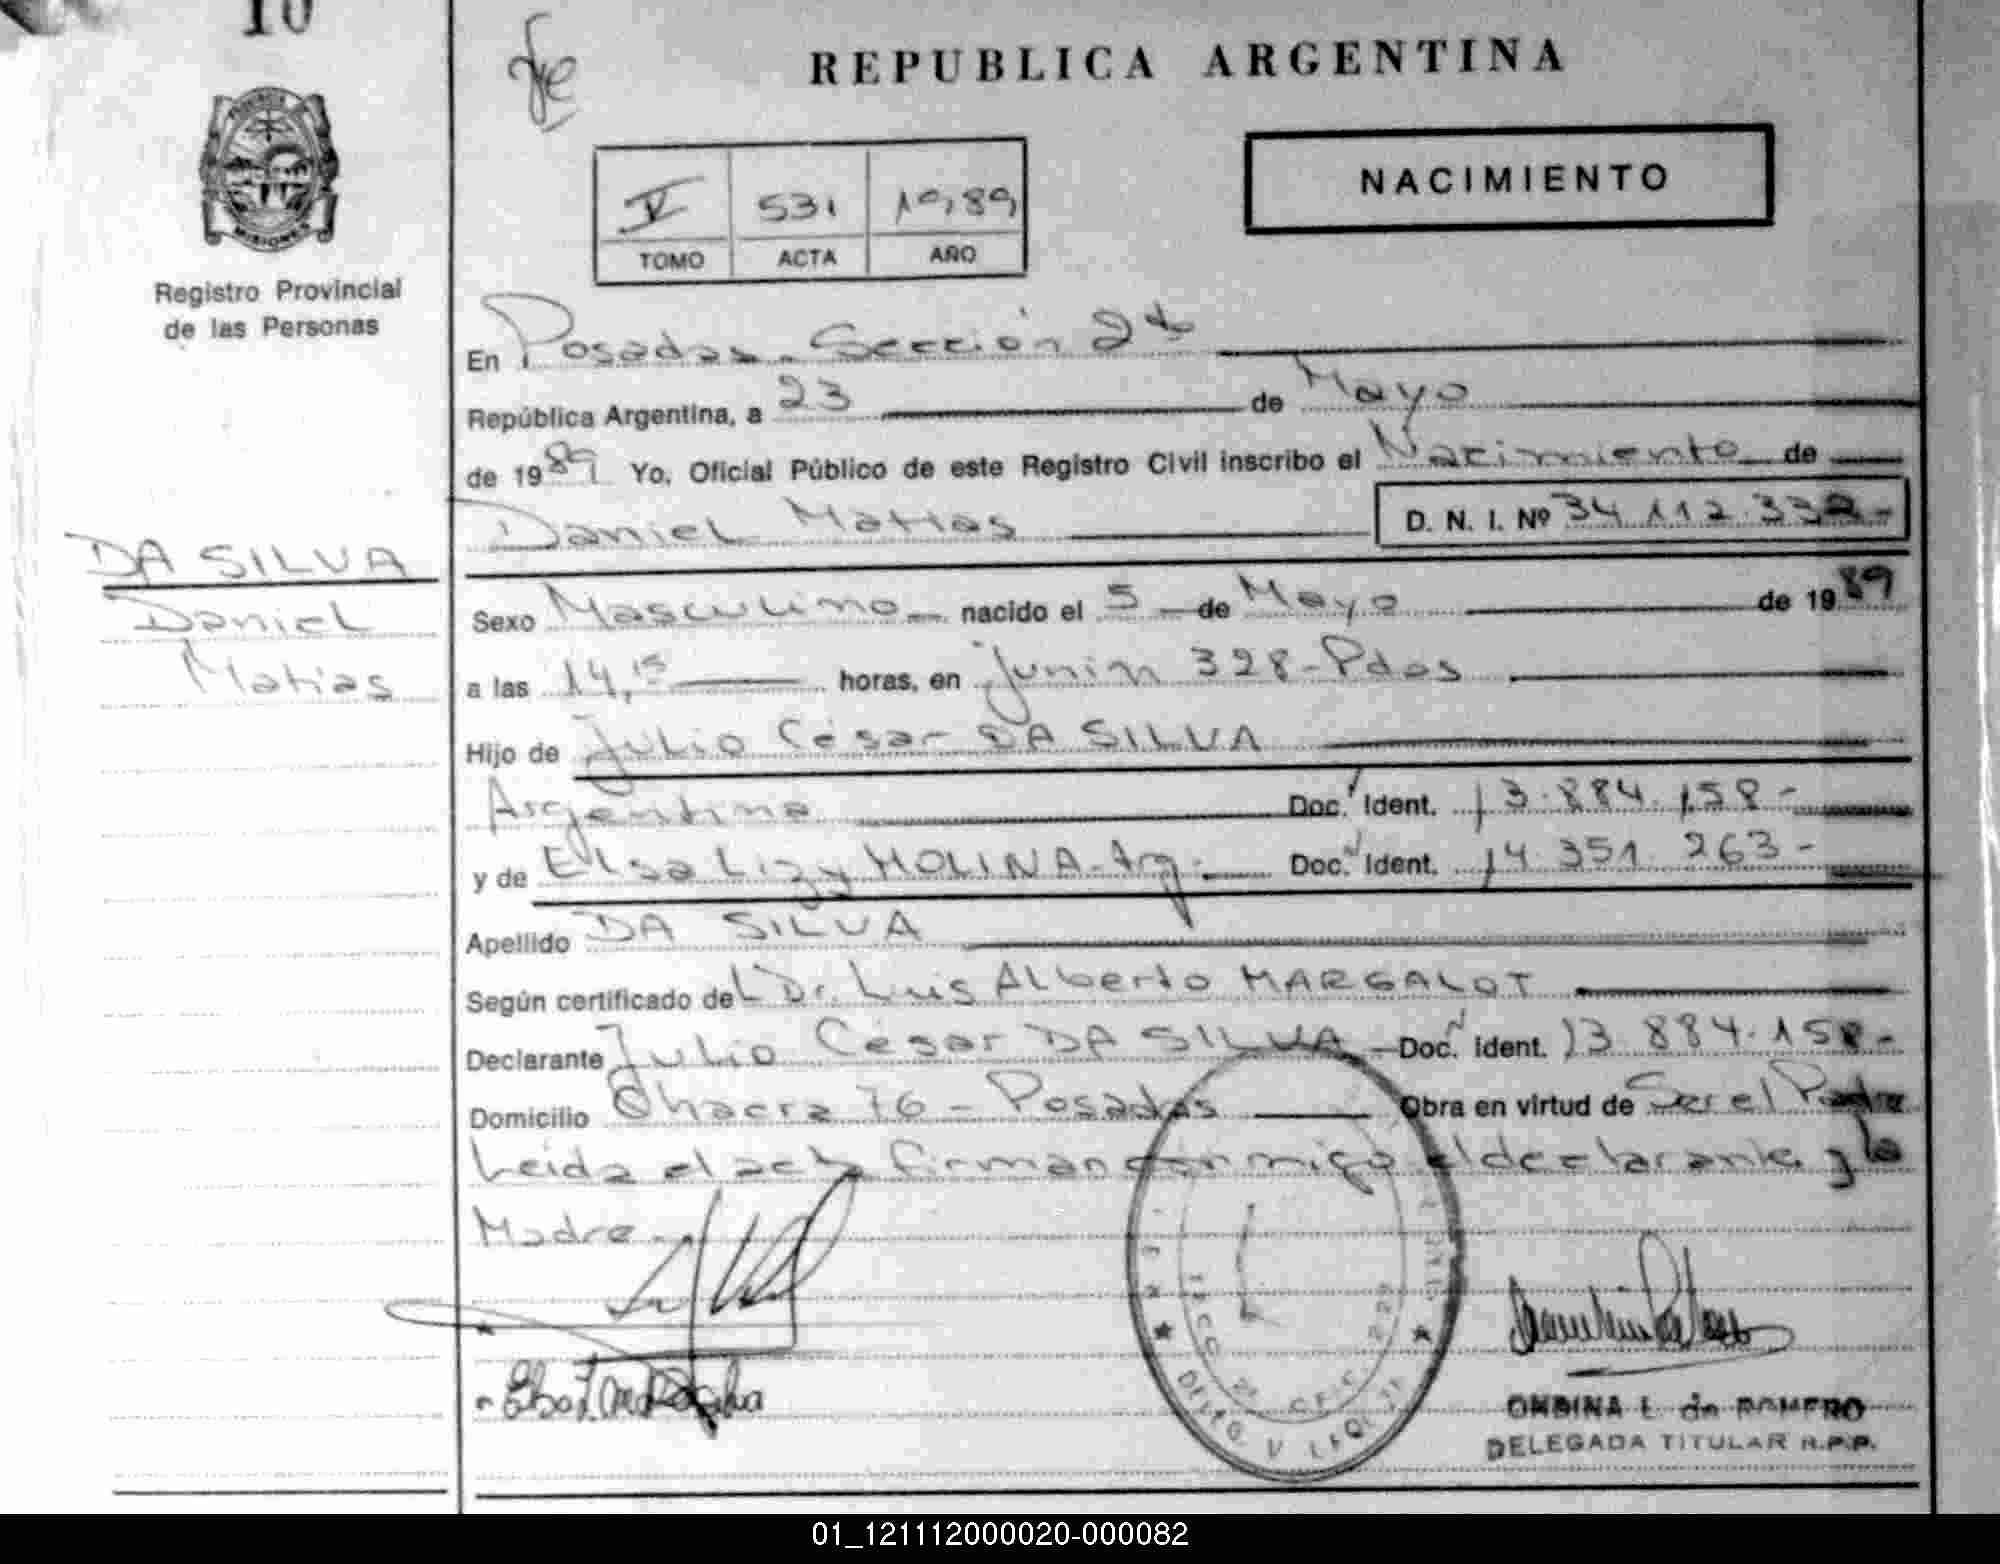 10
REPUBLICA ARGENTINA
NACIMIENTO
V 531 1989
TOMO ACTA AÑO
MISIONES
Registro Provincial
de las Personas
En Posadas - Sección 2da
República Argentina, a 23 de Mayo
de 1989 Yo, Oficial Público de este Registro Civil inscribo el Nacimiento de
Daniel Matias D. N. I. Nº 34.112.332-
DA SILVA
Daniel
Matias
Sexo Masculino nacido el 5 de Mayo de 1989
a las 14,15 horas, en Junin 328-Pdas
Hijo de Julio César DA SILVA
Argentino Doc. Ident. 13.884.158-
y de Elsa Lizy MOLINA-Arg. Doc. Ident. 14.351.263-
Apellido DA SILVA
Según certificado del Dr. Luis Alberto MARGALOT
Declarante Julio César DA SILVA Doc. Ident. 13.884.158-
Domicilio Chacra 76 - Posadas Obra en virtud de Ser el Padre
Leida el acta firman conmigo el declarante y la
Madre.-
ONDINA L. de ROMERO
DELEGADA TITULAR R.P.P.
01_121112000020-000082